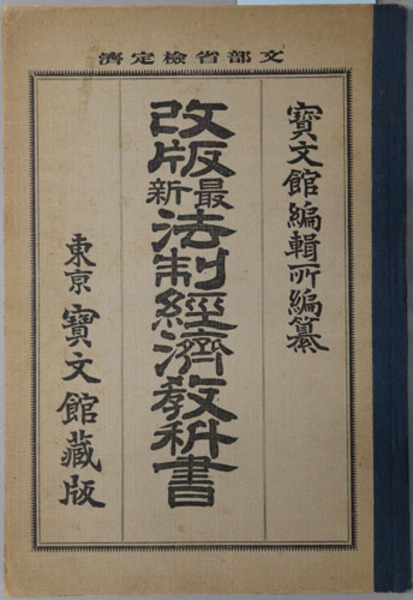 文部省檢定濟
寶文館編輯所編纂
改版最新法制經濟敎科書
東京寶文館藏版